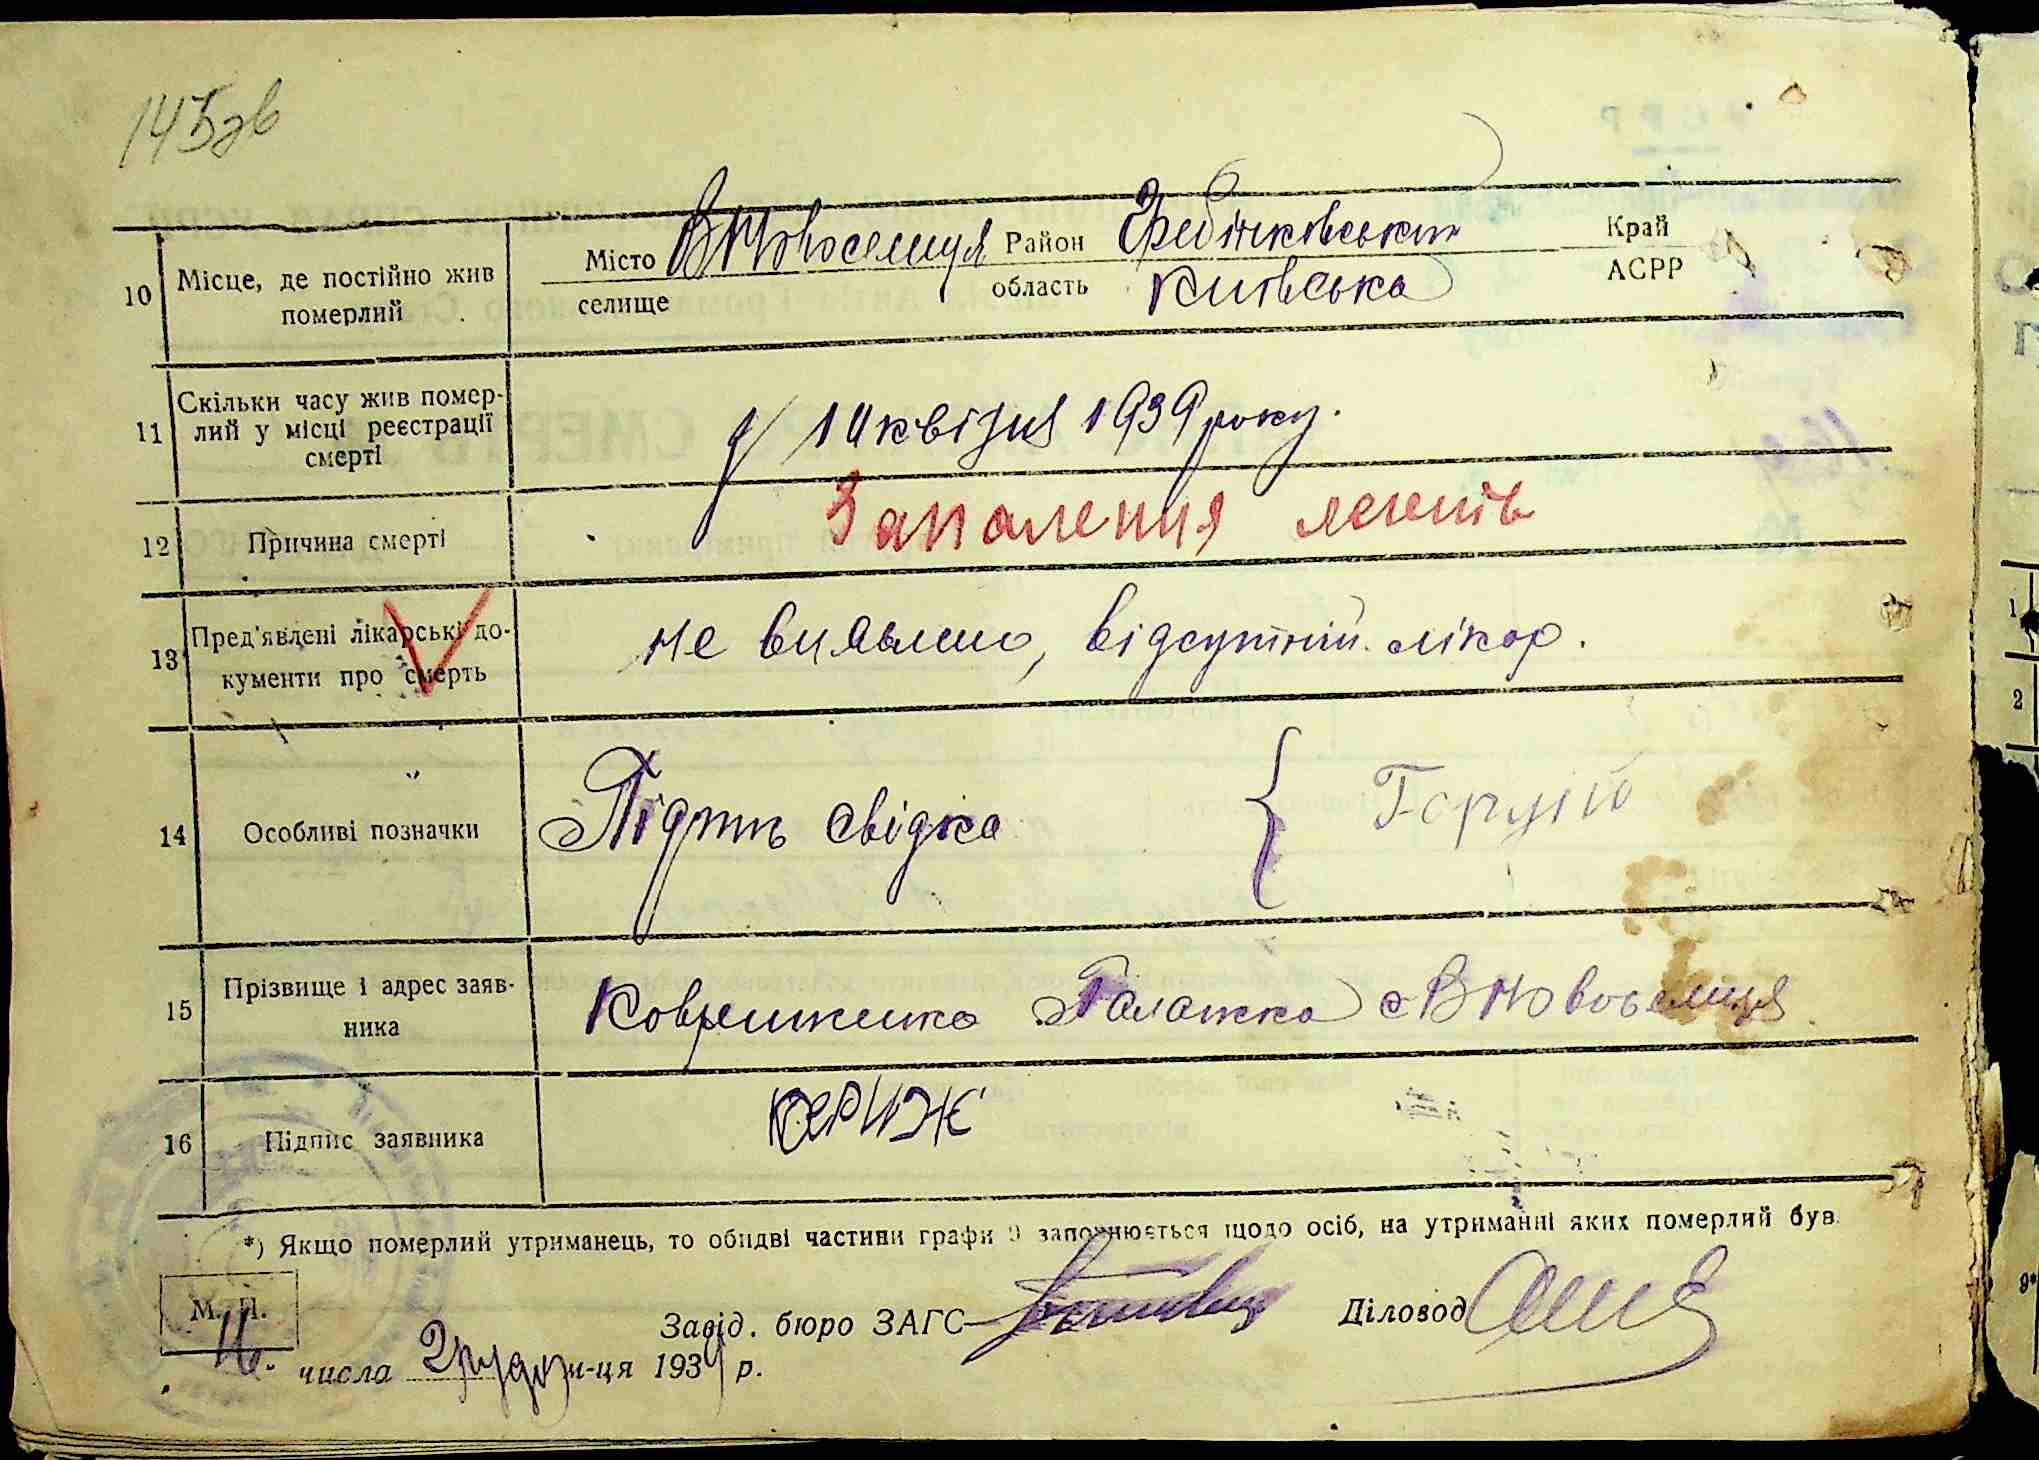 145 зв
10 Місце, де постійно жив померлий
Місто В Новоселиця Район Гребінківський Край
селище область Київська АСРР
11 Скільки часу жив помер-
лий у місці реєстрації
смерті
1 квітня 1939 року.
12 Причина смерті Запалення легенів
13 Пред'явлені лікарські до-
кументи про смерть
не виявлено, відсутній лікар.
14 Особливі позначки Підпись свідка { Гордій
15 Прізвище і адрес заяв-
ника
Палажка с В Новоселиця
16 Підпис заявника
*) Якщо померлий утриманець, то обидві частини графи 9 заповнюється щодо осіб, на утриманні яких померлий був.
М. П.
Завід. бюро ЗАГС Діловод
16. числа Грудня м-ця 1939 р.